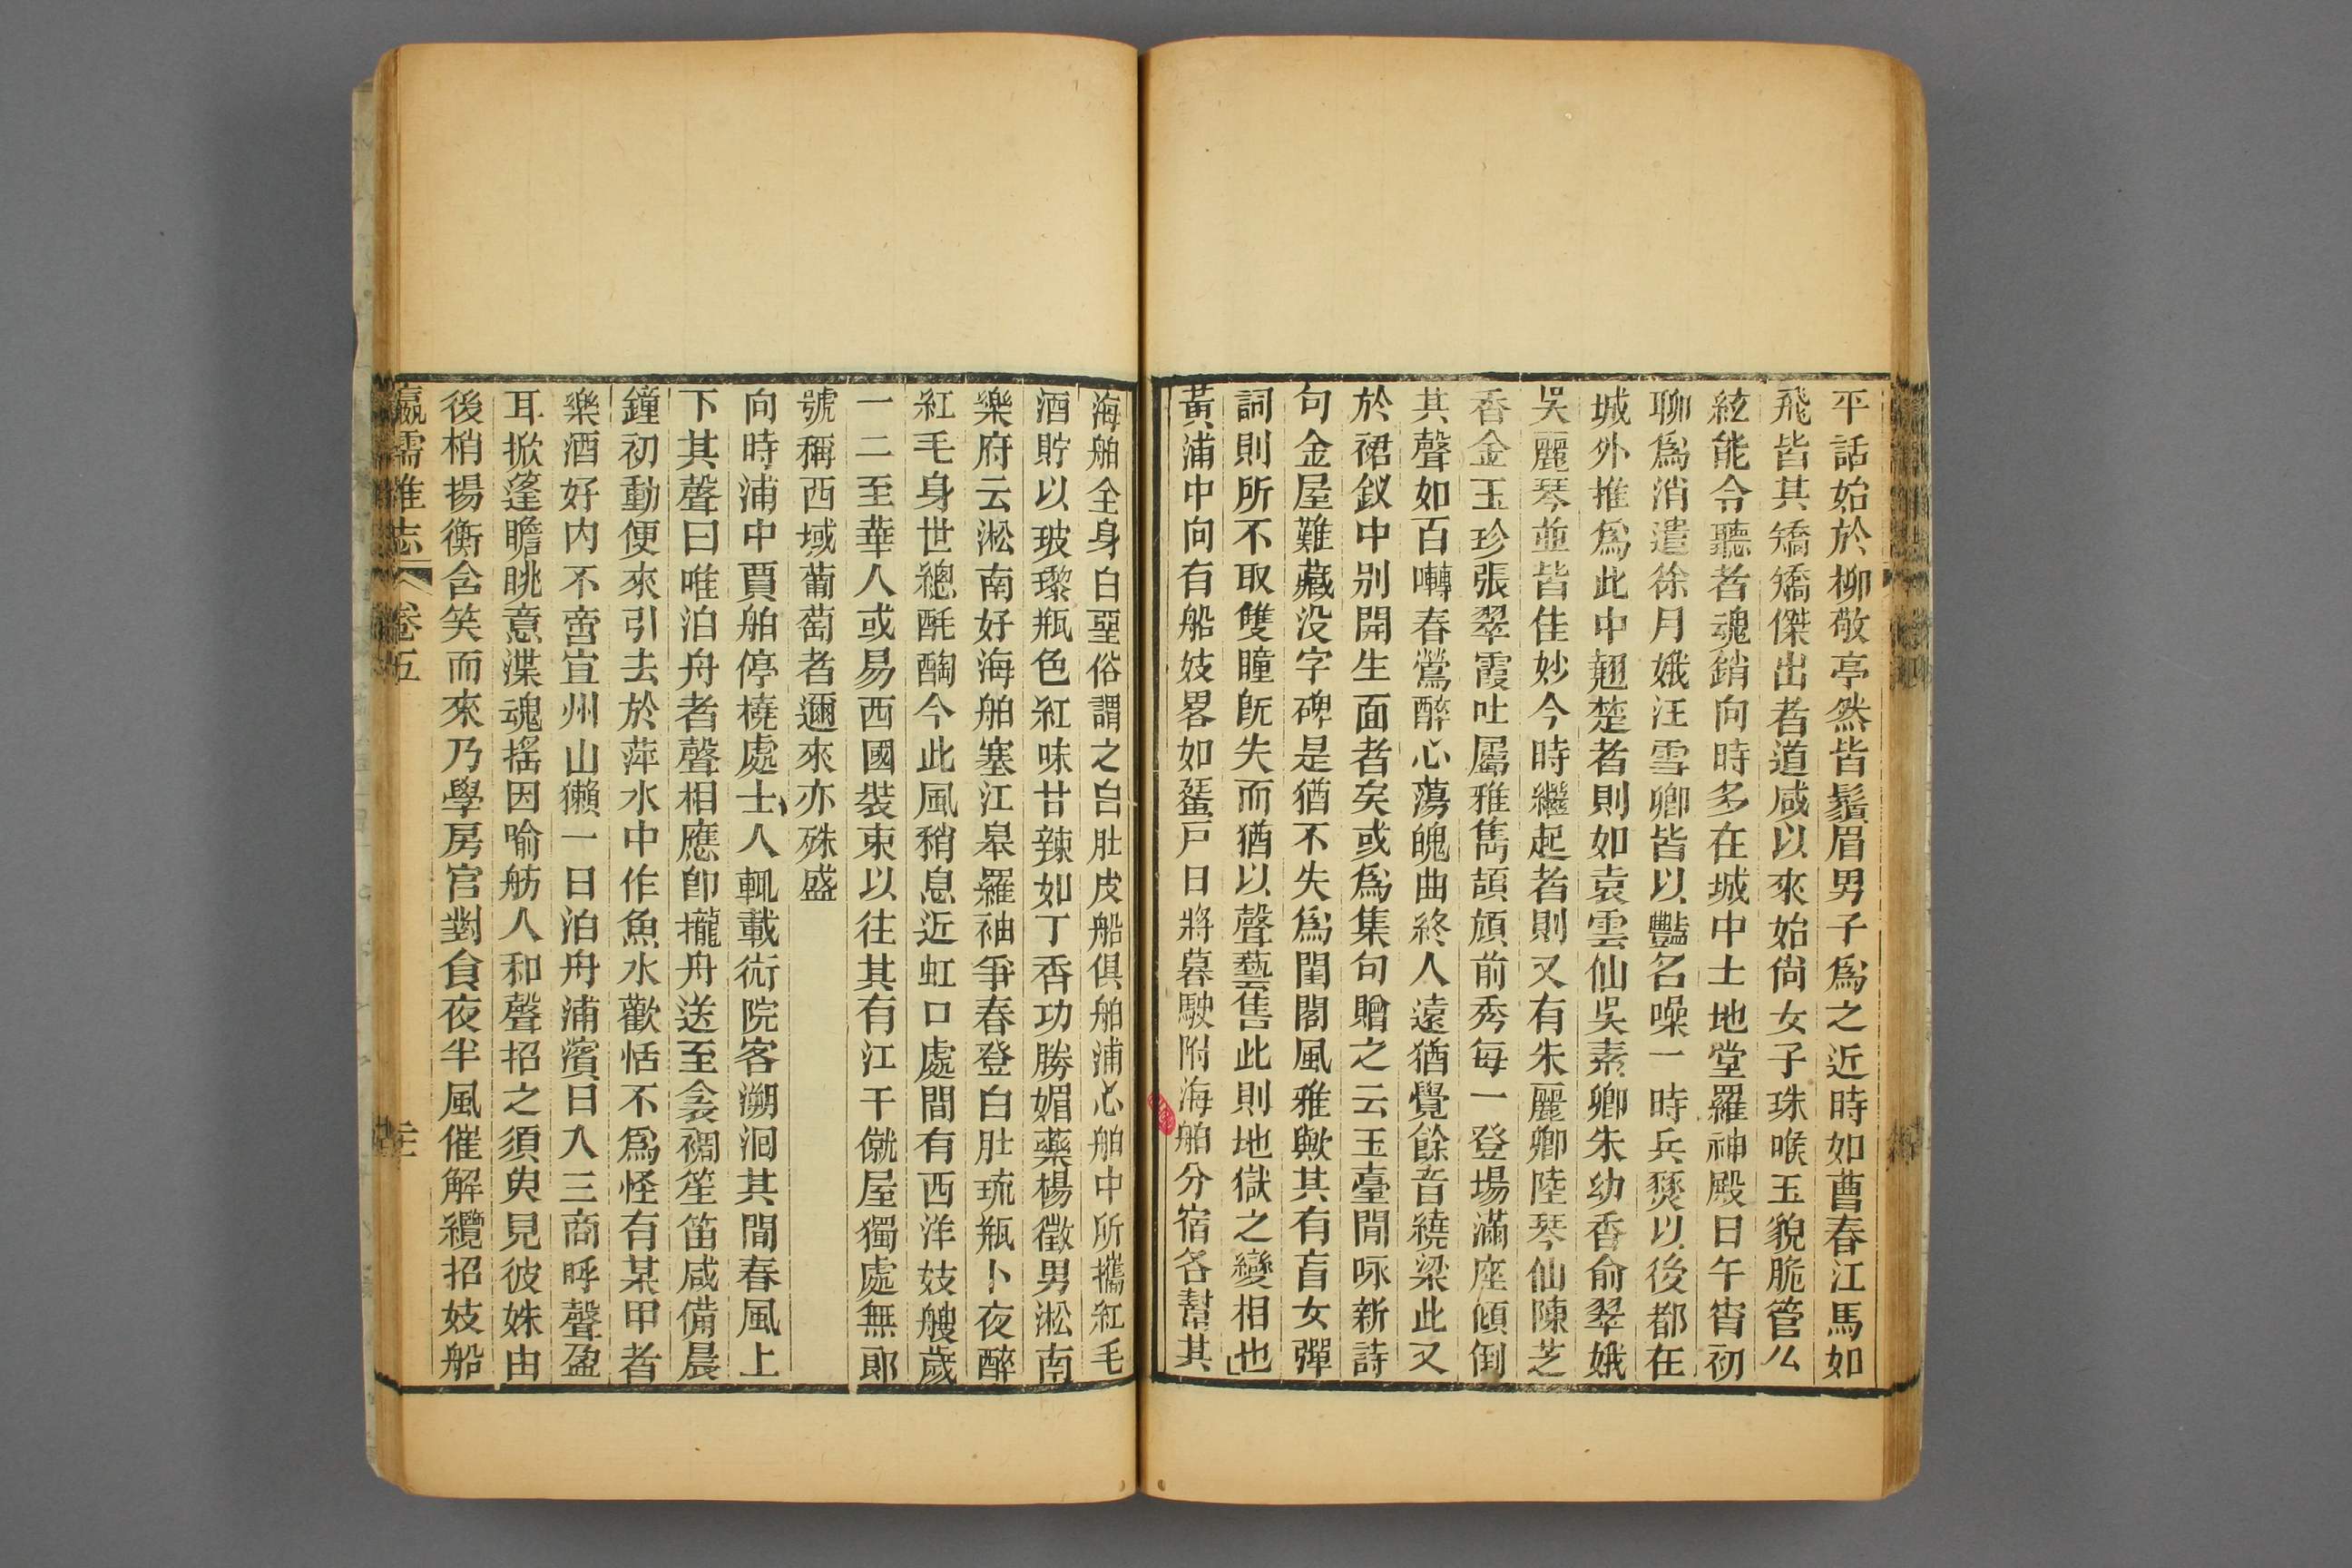 平話始於柳敬亭然皆鬚眉男子爲之近時如曹春江馬如
飛皆其矯矯傑出者道咸以來始尙女子珠喉玉貌脆管么
絃能令聽者魂銷向時多在城中土地堂羅神殿日午宵初
聊爲消遣徐月娥汪雪卿皆以豔名噪一時兵燹以後都在
城外推爲此中翹楚者則如袁雲仙吳素卿朱幼香俞翠娥
吳麗琴並皆佳妙今時繼起者則又有朱麗卿陸琴仙陳芝
香金玉珍張翠霞吐屬雅雋頡頏前秀每一登場滿座傾倒
其聲如百囀春鶯醉心蕩魄曲終人遠猶覺餘音繞梁此又
於裙釵中别開生面者矣或爲集句贈之云玉臺閒咏新詩
句金屋難藏没字碑是猶不失爲閨閣風雅歟其有盲女彈
詞則所不取雙瞳旣失而猶以聲藝售此則地獄之變相也
黃浦中向有船妓畧如蜑戸日將暮駛附海舶分宿各幇其
海舶全身白堊俗謂之白肚皮船俱舶浦心舶中所攜紅毛
酒貯以玻瓈瓶色紅味甘辣如丁香功勝媚藥楊徵男淞南
樂府云淞南好海舶塞江皋羅袖爭春登白肚琉瓶卜夜醉
紅毛身世總酕醄今此風稍息近虹口處間有西洋妓艘歲
一二至華人或易西國裝束以往其有江干僦屋獨處無郎
號稱西域葡萄者邇來亦殊盛
向時浦中賈舶停橈處士人輒載衏院客溯洄其間春風上
下其聲曰唯泊舟者聲相應卽攏舟送至衾裯笙笛咸備晨
鐘初動便來引去於萍水中作魚水歡恬不爲怪有某甲者
樂酒好内不啻宜州山獺一日泊舟浦濱日入三商呼聲盈
耳掀篷瞻眺意渫魂搖因喻舫人和聲招之須臾見彼姝由
後梢揚衡含笑而來乃學房官對食夜半風催解纜招妓船
瀛壖雜志 卷五